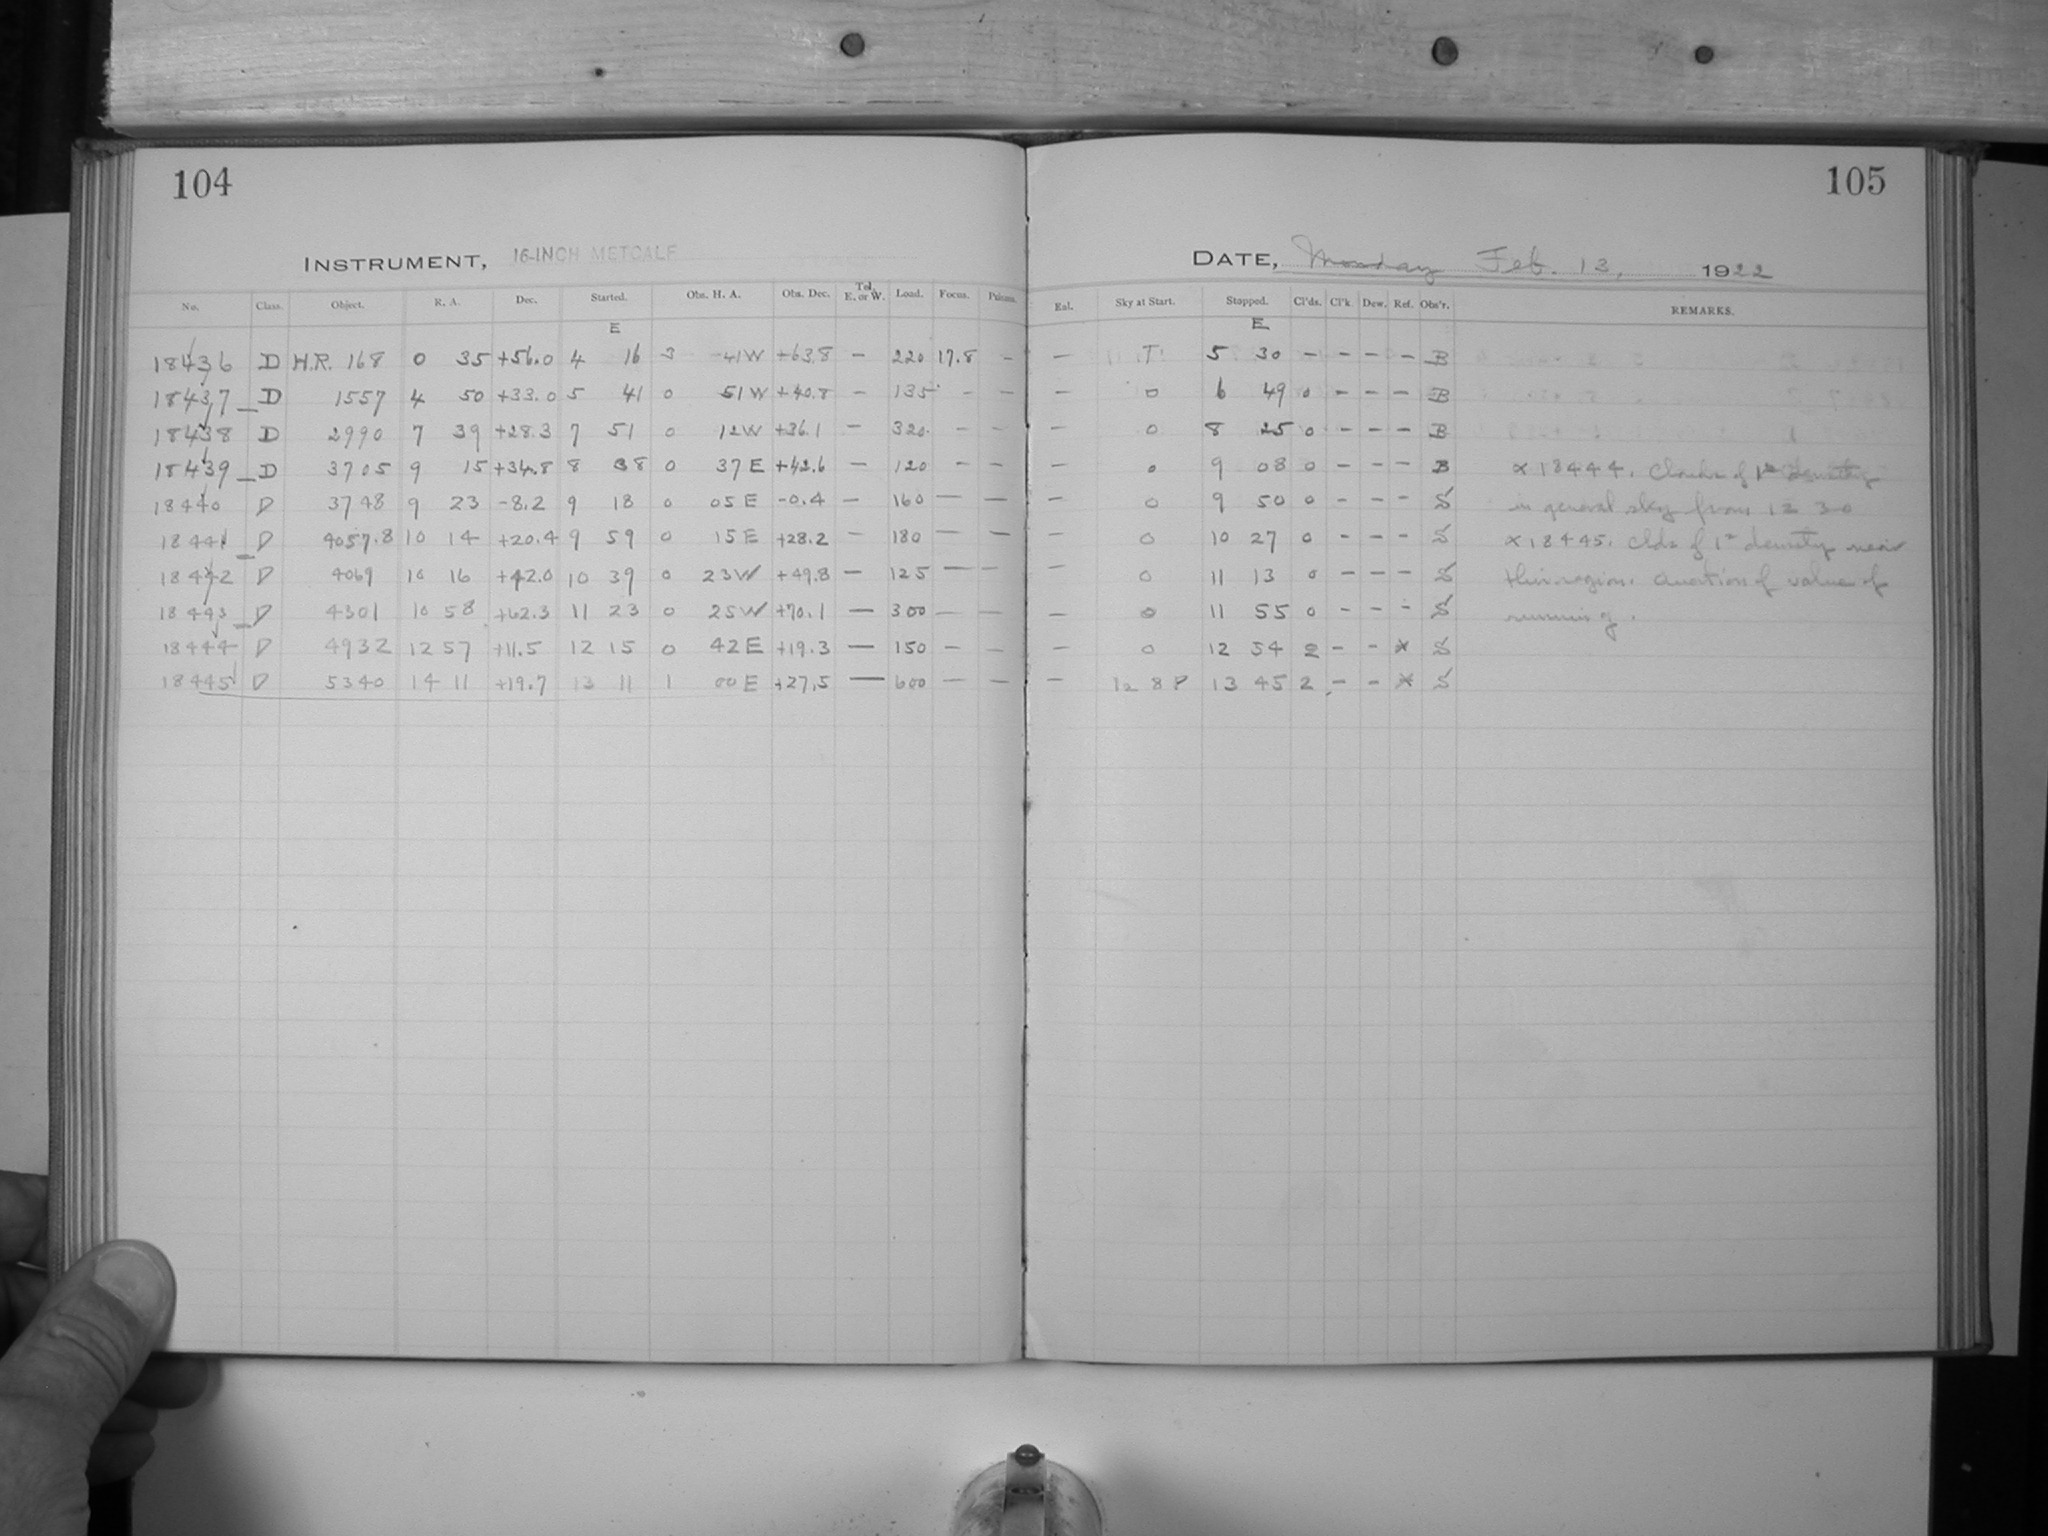 104
INSTRUMENT, 16-INCH METCALF
No. Class. Object. R. A. Dec. Started. Obs. H. A. Obs. Dec. Tel. E. or W. Load. Focus.
E
18436 D H.R. 168 0 35 +56.0 4 16 3 41W +63.8 – 220 17.8 –
18437 D 1557 4 50 +33.0 5 41 0 51W +40.8 – 135 – –
18438 D 2990 7 39 +28.3 7 51 0 12W +36.1 – 320 – –
18439 D 3705 9 15 +34.8 8 38 0 37E +42.6 – 120 – –
18440 D 3748 9 23 -8.2 9 18 0 05E -0.4 – 160 – –
18441 D 4057.8 10 14 +20.4 9 59 0 15E +28.2 – 180 – –
18442 D 4069 10 16 +42.0 10 39 0 23W +49.8 – 125 – –
18443 D 4301 10 58 +62.3 11 23 0 25W +70.1 – 300 – –
18444 D 4932 12 57 +11.5 12 15 0 42E +19.3 – 150 – –
18445 D 5340 14 11 +19.7 13 11 1 00E +27.5 – 600 – –
105
DATE, Monday Feb. 13, 1922
Sky at Start. Stopped. Cl'ds. Cl'k. Dew. Ref. Obs'r. REMARKS.
E
– T 5 30 – – – – B
– 0 6 49 0 – – – B
– 0 8 25 0 – – – B
– 0 9 08 0 – – – B × 18444. Clouds of 1st density
– 0 9 50 0 – – – S in general sky from 12 30
– 0 10 27 0 – – – S × 18445. Clds of 1st density near
– 0 11 13 0 – – – S this region. Question of value of
– 0 11 55 0 – – – S running.
– 0 12 54 2 – – * S
– 12 8 P 13 45 2 – – * S